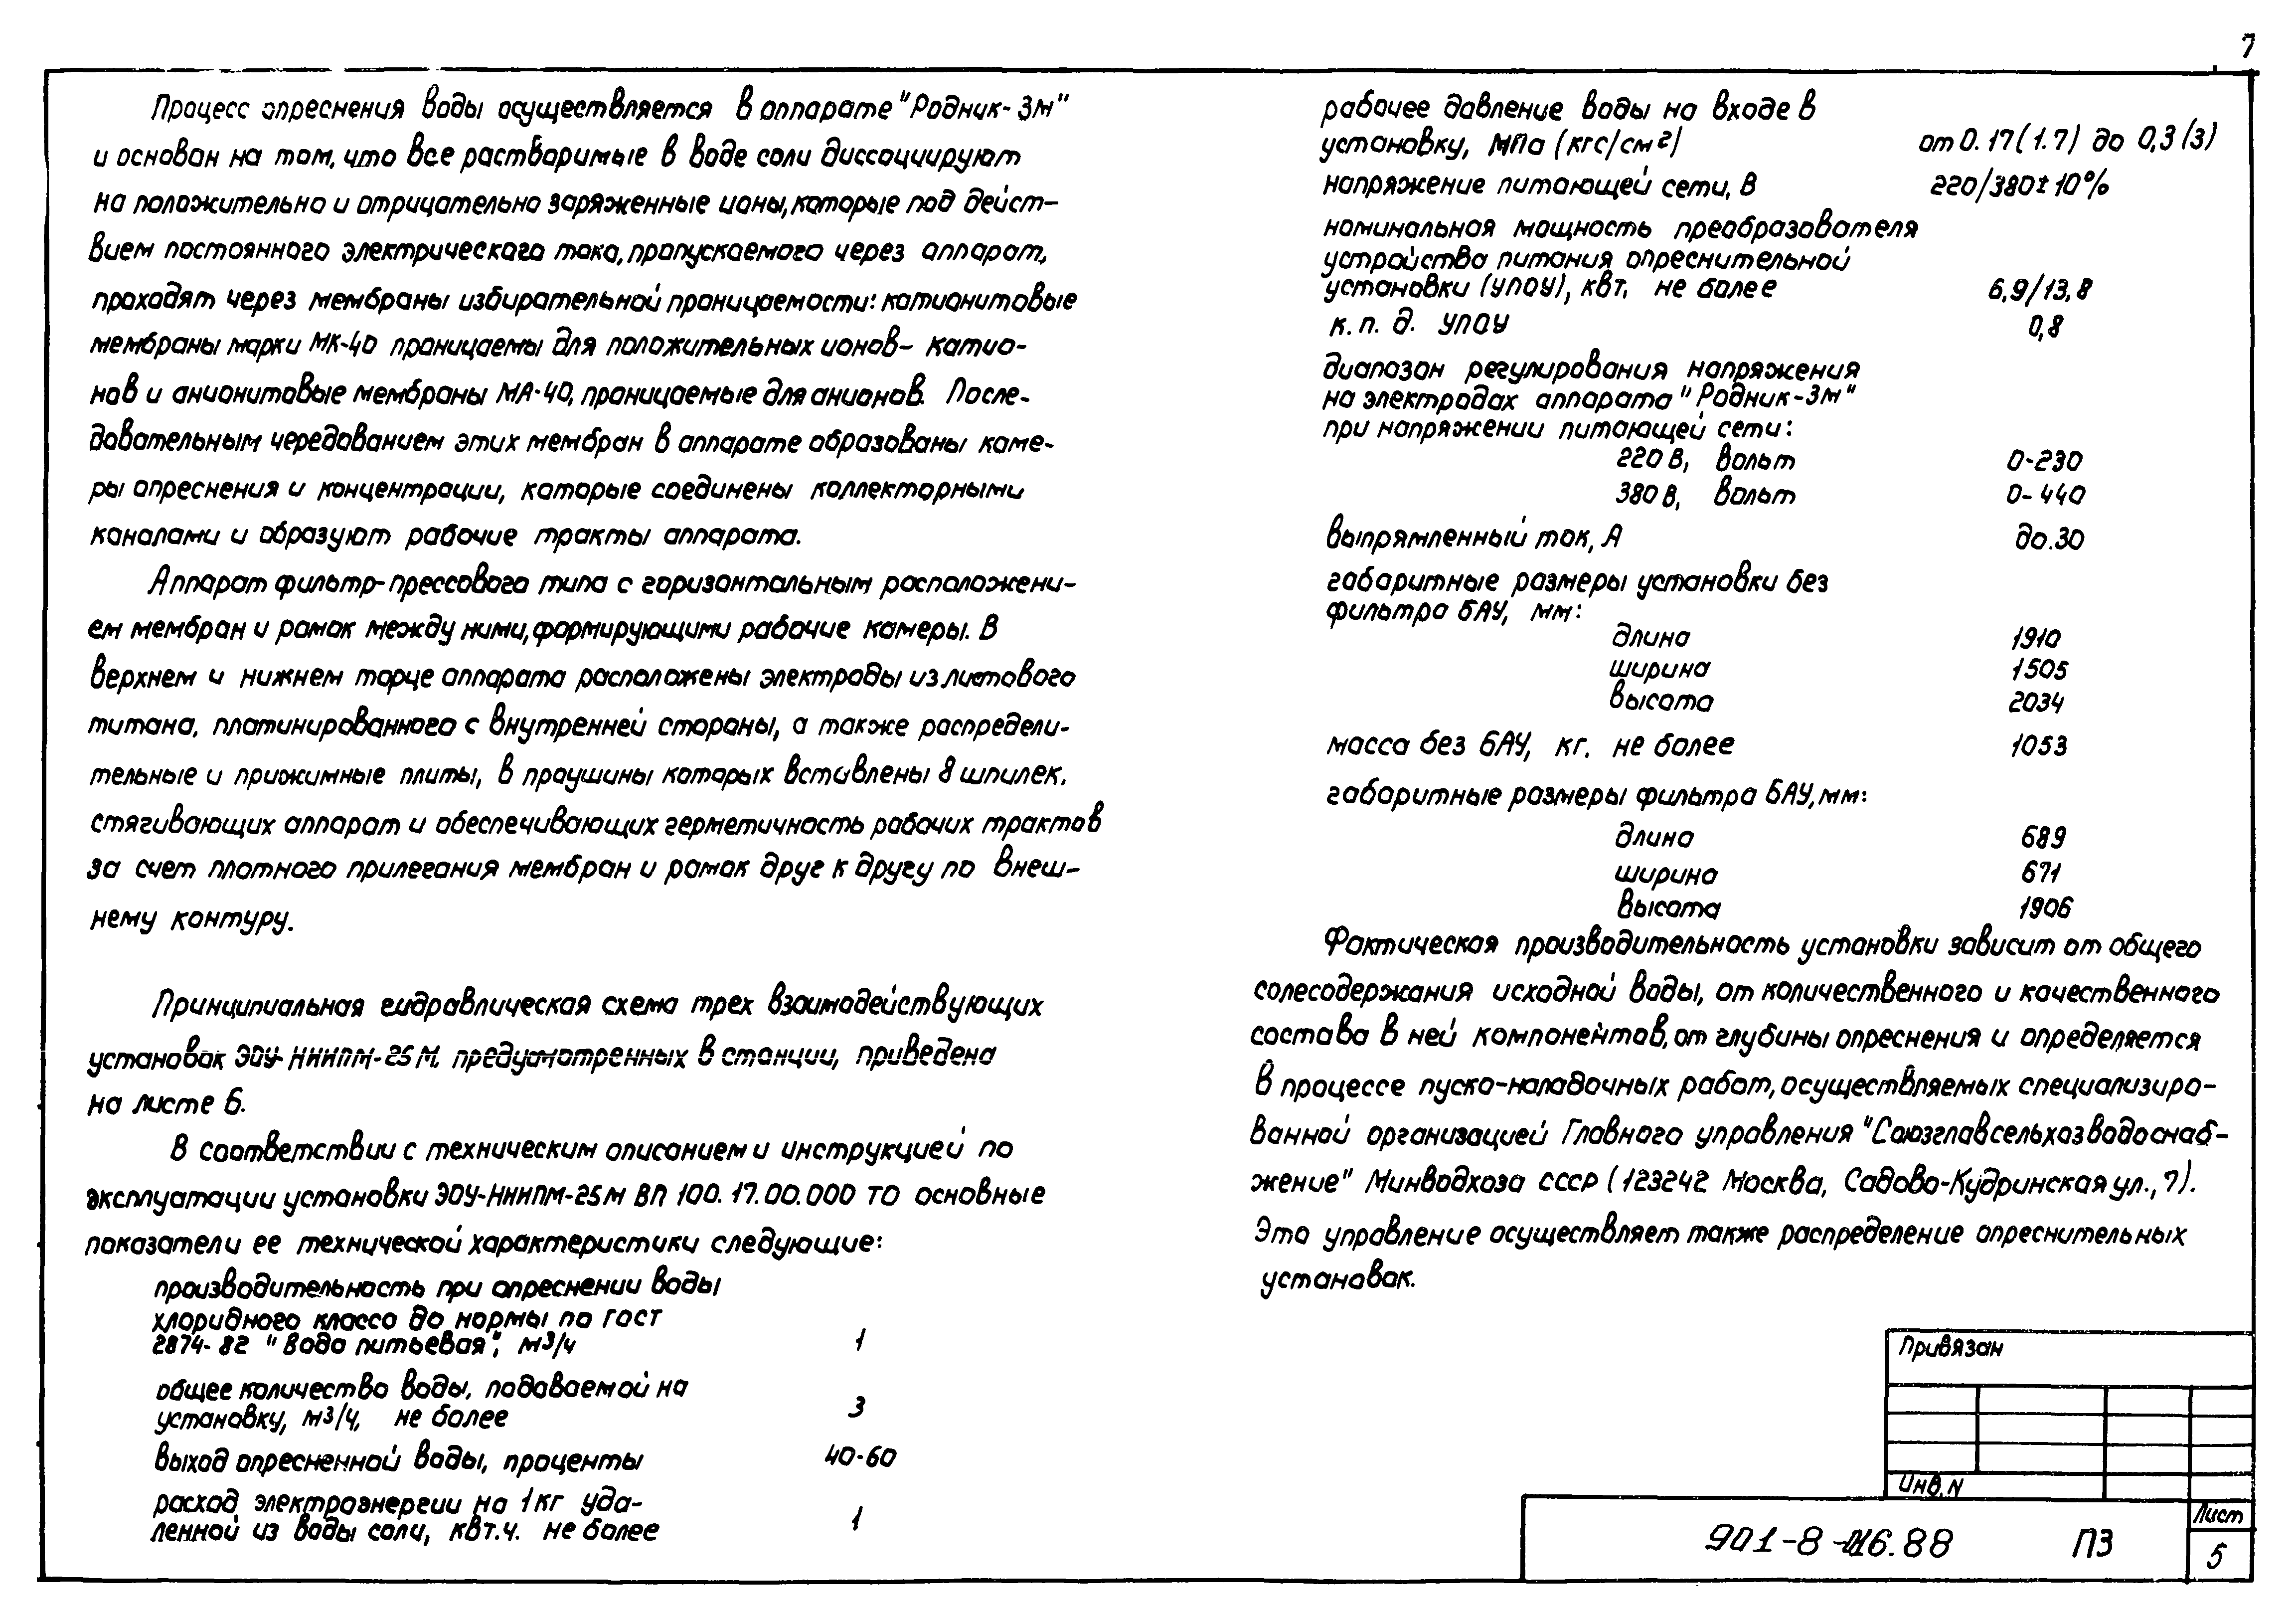 7
Процесс опреснения воды осуществляется в аппарате "Родник-3М"
и основан на том, что все растворимые в воде соли диссоциируют
на положительно и отрицательно заряженные ионы, которые под дейст-
вием постоянного электрического тока, пропускаемого через аппарат,
проходят через мембраны избирательной проницаемости: катионитовые
мембраны марки МК-40 проницаемы для положительных ионов- катио-
нов и анионитовые мембраны МА-40, проницаемые для анионов. После-
довательным чередованием этих мембран в аппарате образованы каме-
ры опреснения и концентрации, которые соединены коллекторными
каналами и образуют рабочие тракты аппарата.
Аппарат фильтр-прессового типа с горизонтальным расположени-
ем мембран и рамок между ними, формирующими рабочие камеры. В
верхнем и нижнем торце аппарата расположены электроды из листового
титана, платинированного с внутренней стороны, а также распредели-
тельные и прижимные плиты, в проушины которых вставлены 8 шпилек,
стягивающих аппарат и обеспечивающих герметичность рабочих трактов
за счет плотного прилегания мембран и рамок друг к другу по внеш-
нему контуру.
Принципиальная гидравлическая схема трех взаимодействующих
установок ЭОУ-НИИПМ-25М, предусмотренных в станции, приведена
на листе 6.
В соответствии с техническим описанием и инструкцией по
эксплуатации установки ЭОУ-НИИПМ-25М ВП 100.17.00.000 ТО основные
показатели ее технической характеристики следующие:
производительность при опреснении воды
хлоридного класса до нормы по ГОСТ
2874-82 "Вода питьевая", м3/ч 1
общее количество воды, подаваемой на
установку, м3/ч, не более 3
выход опресненной воды, проценты 40-60
расход электроэнергии на 1кг уда-
ленной из воды соли, квт.ч. не более 1
рабочее давление воды на входе в
установку, МПа (кгс/см2) от 0.17(1.7) до 0,3(3)
напряжение питающей сети, В 220/380±10%
номинальная мощность преобразователя
устройства питания опреснительной
установки (УПОУ), квт, не более 6,9/13,8
к.п.д. УПОУ 0,8
диапазон регулирования напряжения
на электродах аппарата "Родник-3М"
при напряжении питающей сети:
220 В, вольт 0-230
380 В, вольт 0-440
выпрямленный ток, А до.30
габаритные размеры установки без
фильтра БАУ, мм:
длина 1910
ширина 1505
высота 2034
масса без БАУ, кг. не более 1053
габаритные размеры фильтра БАУ, мм:
длина 689
ширина 671
высота 1906
Фактическая производительность установки зависит от общего
солесодержания исходной воды, от количественного и качественного
состава в ней компонентов, от глубины опреснения и определяется
в процессе пуско-наладочных работ, осуществляемых специализиро-
ванной организацией Главного управления "Союзглавсельхозводоснаб-
жение" Минводхоза СССР (123242 Москва, Садово-Кудринская ул., 7).
Это управление осуществляет также распределение опреснительных
установок.
Привязан
Инв. N
901-8- 16.88 ПЗ
Лист
5